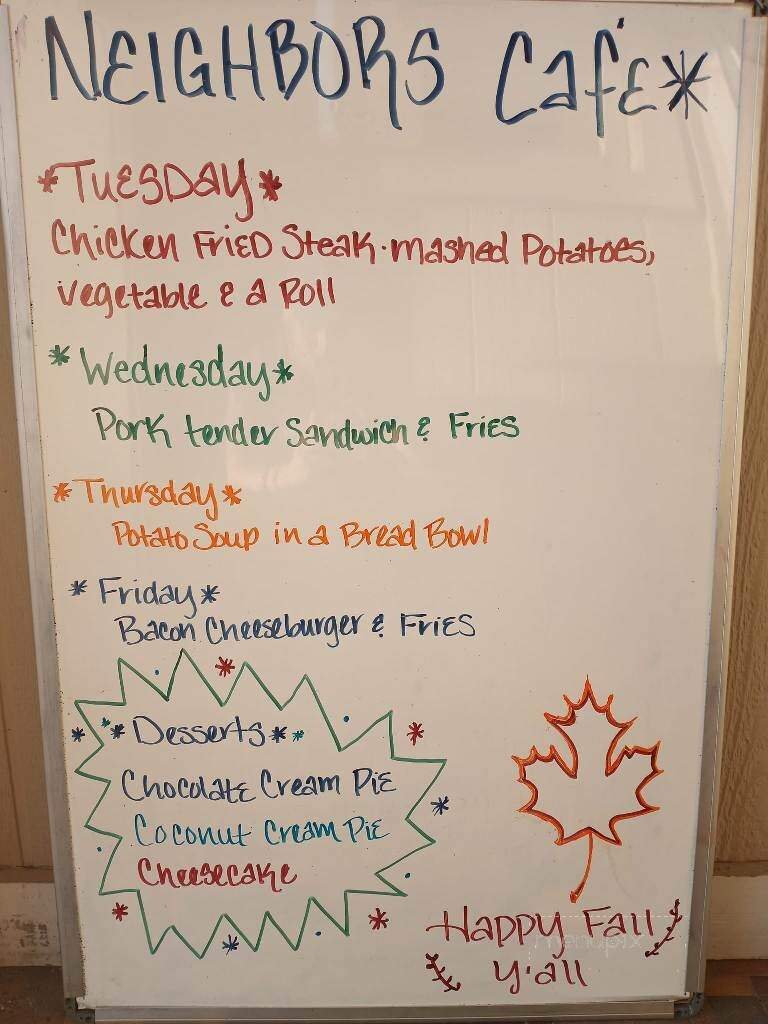 NEIGHBORS Café*
*Tuesday*
Chicken Fried Steak · mashed Potatoes,
vegetable & a Roll
*Wednesday*
Pork tender Sandwich & Fries
*Thursday*
Potato Soup in a Bread Bowl
*Friday*
Bacon Cheeseburger & Fries
**Desserts**
Chocolate Cream Pie
Coconut Cream Pie
Cheesecake
Happy Fall
Y'all